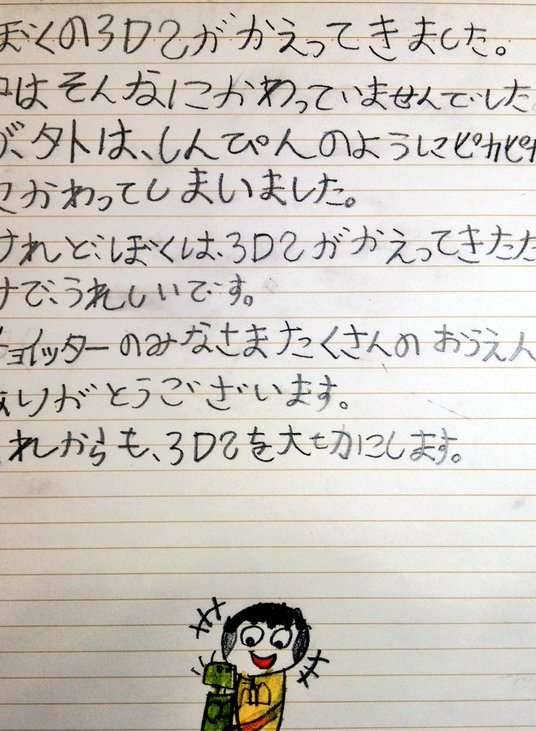 ぼくの3DSがかえってきました。
中はそんなにかわっていませんでした
が、外は、しんぴんのようにピカピカ
にかわってしまいました。
けれど、ぼくは、3DSがかえってきただ
けで、うれしいです。
チョイッターのみなさまたくさんのおうえん
ありがとうございます。
これからも、3DSを大切にします。